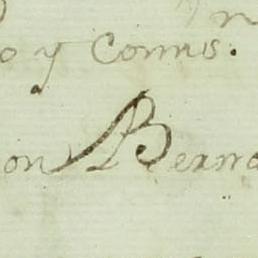 o y Comis.
on Berna